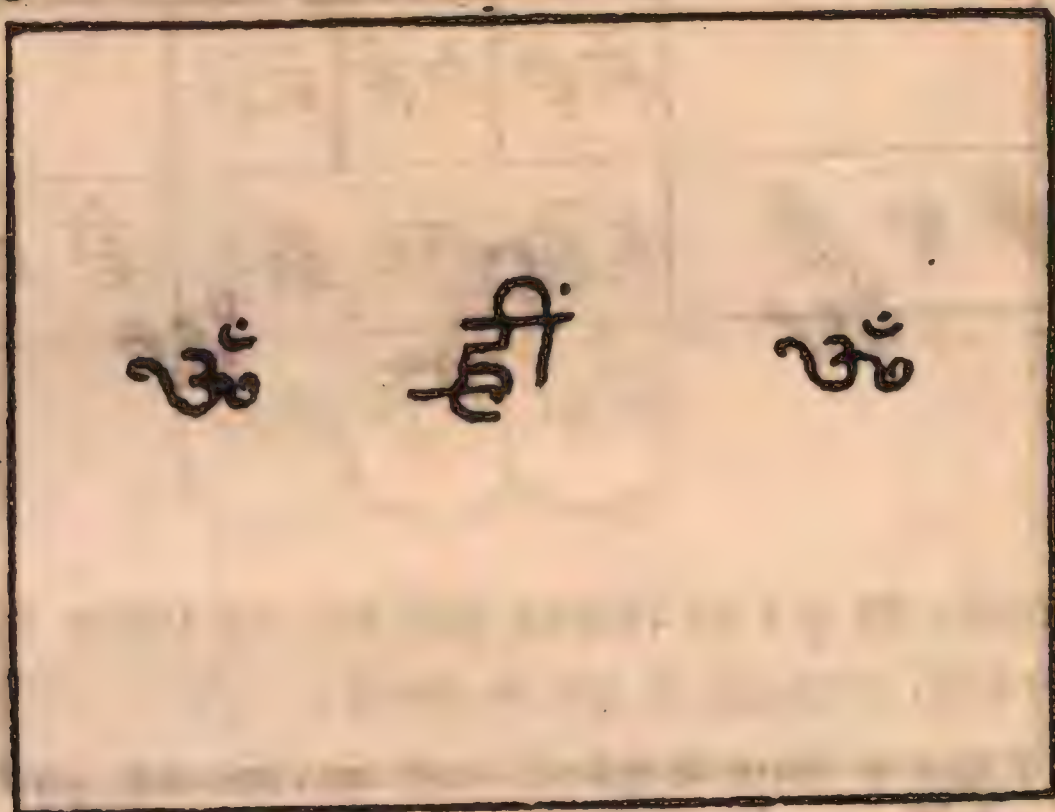 ॐ ह्रीं ॐ